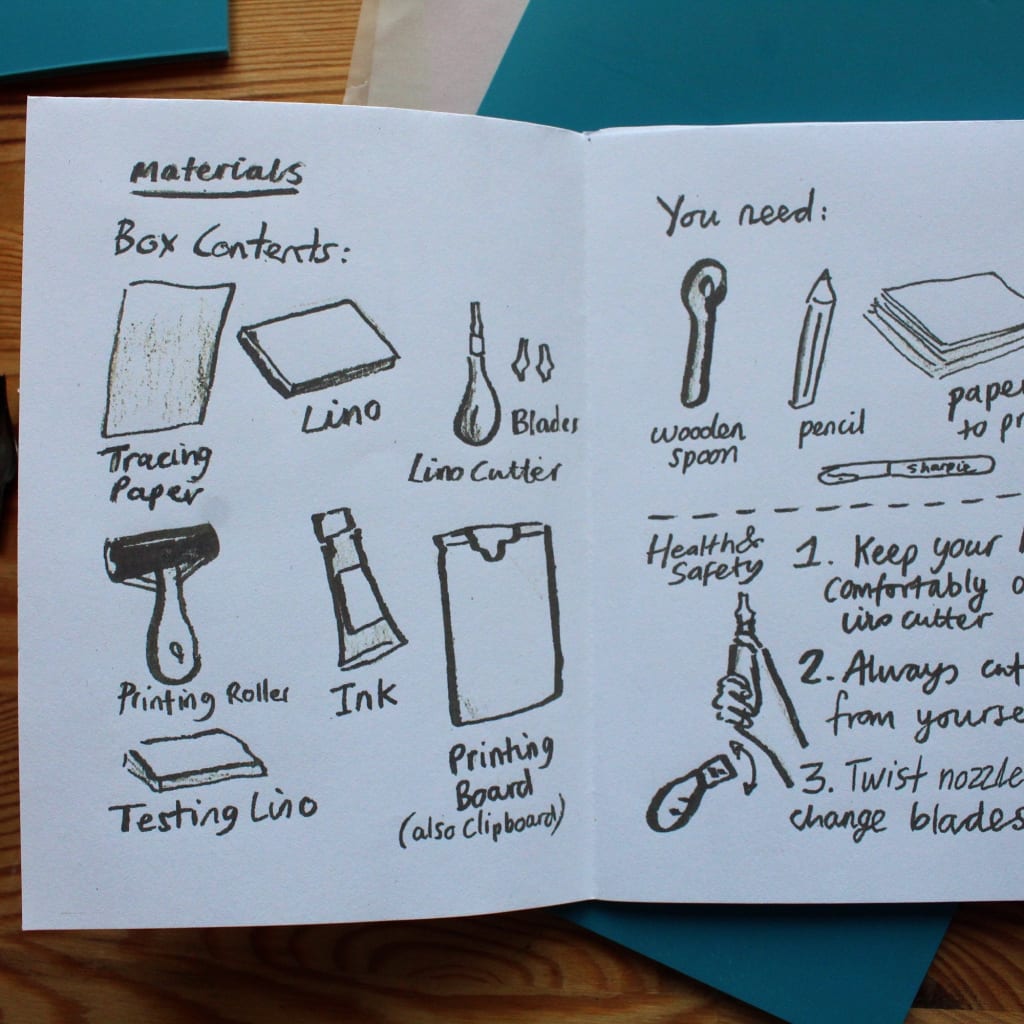 Materials
Box Contents:
Tracing
Paper
Lino
Blades
Lino Cutter
Printing Roller
Ink
Printing
Board
(also Clipboard)
Testing Lino
You need:
wooden
spoon
pencil
paper
to
sharpie
Health &
Safety
1. Keep your
comfortably
lino cutter
2. Always cut
from
3. Twist nozzle
change blades